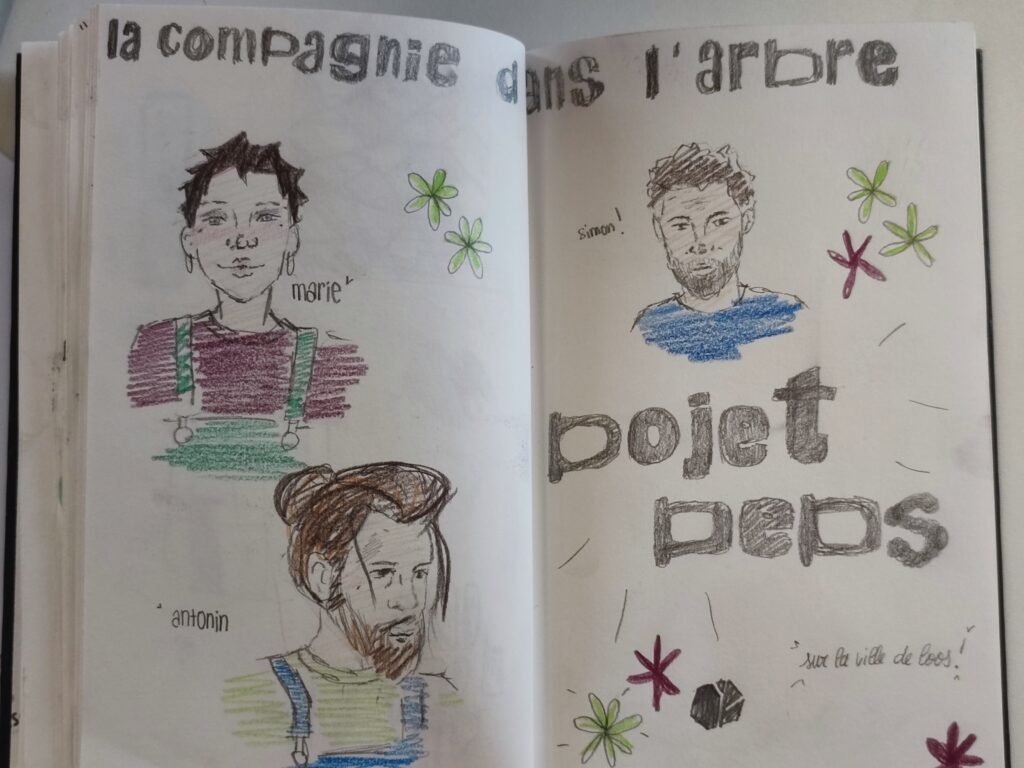 la compagnie dans l'arbre
marie
antonin
simon!
pojet
peps
sur la ville de loos!